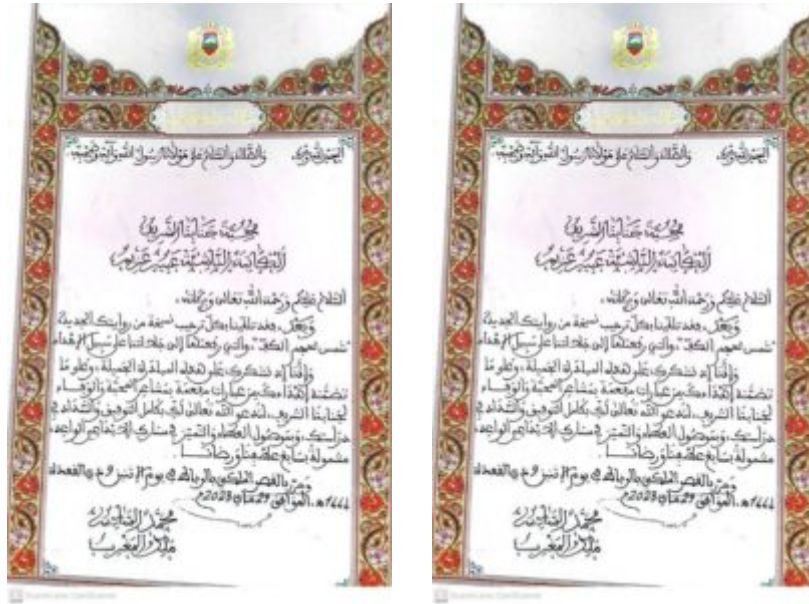 الحمد لله وحده، والصلاة والسلام على مولانا رسول الله وآله وصحبه.
محبة جنابنا الشريف
الكاتبة الناشئة عبير عزيم
السلام عليكم ورحمة الله تعالى وبركاته،
وبعد، فقد تلقينا بكل ترحيب نسخة من روايتك الجديدة
"شمس تحجبها الكف"، والتي رفعتها إلى جلالتنا على سبيل الإهداء
وإننا إذ نشكرك على هذه المبادرة الجميلة، وعلى ما
تضمنه إهداؤك من عبارات مفعمة بمشاعر المحبة والوفاء
لجنابنا الشريف، لندعو الله تعالى لك بكامل التوفيق والسداد في
دراستك، وبموصول العطاء والتميز في مسارك الإبداعي الواعد،
مشمولة بسابغ عطفنا ورضانا.
وحرر بالقصر الملكي بالرباط في يوم الإثنين 9 ذي القعدة
1444هـ، الموافق 29 ماي 2023م
محمد السادس
ملك المغرب
الحمد لله وحده، والصلاة والسلام على مولانا رسول الله وآله وصحبه.
محبة جنابنا الشريف
الكاتبة الناشئة عبير عزيم
السلام عليكم ورحمة الله تعالى وبركاته،
وبعد، فقد تلقينا بكل ترحيب نسخة من روايتك الجديدة
"شمس تحجبها الكف"، والتي رفعتها إلى جلالتنا على سبيل الإهداء
وإننا إذ نشكرك على هذه المبادرة الجميلة، وعلى ما
تضمنه إهداؤك من عبارات مفعمة بمشاعر المحبة والوفاء
لجنابنا الشريف، لندعو الله تعالى لك بكامل التوفيق والسداد في
دراستك، وبموصول العطاء والتميز في مسارك الإبداعي الواعد،
مشمولة بسابغ عطفنا ورضانا.
وحرر بالقصر الملكي بالرباط في يوم الإثنين 9 ذي القعدة
1444هـ، الموافق 29 ماي 2023م
محمد السادس
ملك المغرب